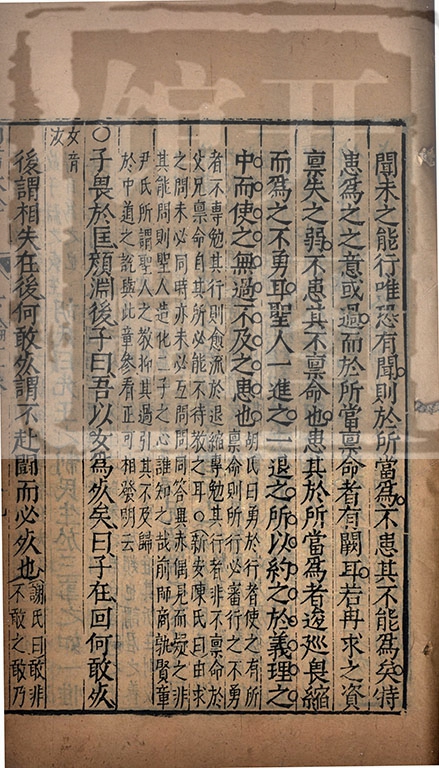 聞未之能行唯恐有聞則於所當爲不患其不能爲矣特
患爲之之意或過而於所當禀命者有闕耳若冉求之資
禀失之弱不患其不禀命也患其於所當爲者逡巡畏縮
而爲之不勇耳聖人一進之一退之所以約之於義理之
中而使之無過不及之患也
胡氏曰勇於行者使之有所
禀則所行必審行之不勇
者不專勉其行則愈流於退縮專勉其行者非不禀命於
父兄禀命自其所必能不待教之耳○新安陳氏曰由求
之問未必同時亦未必互問問同答異亦偶見而疑之非
其能問則聖人造化二子之心誰知之哉前師商孰賢章
尹氏所謂聖人之教抑其過引其不及歸
於中道之說與此章參看正可相發明云
○子畏於匡顏淵後子曰吾以女爲死矣曰子在回何敢死
女音
汝
後謂相失在後何敢死謂不赴鬭而必死也
謝氏曰敢非
不敢之敢乃